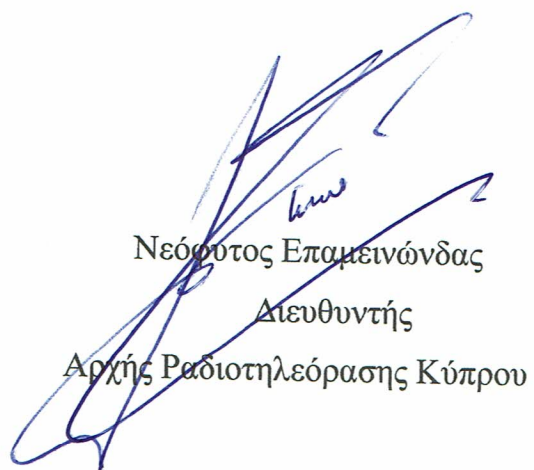 Νεόφυτος Επαμεινώνδας
Διευθυντής
Αρχής Ραδιοτηλεόρασης Κύπρου